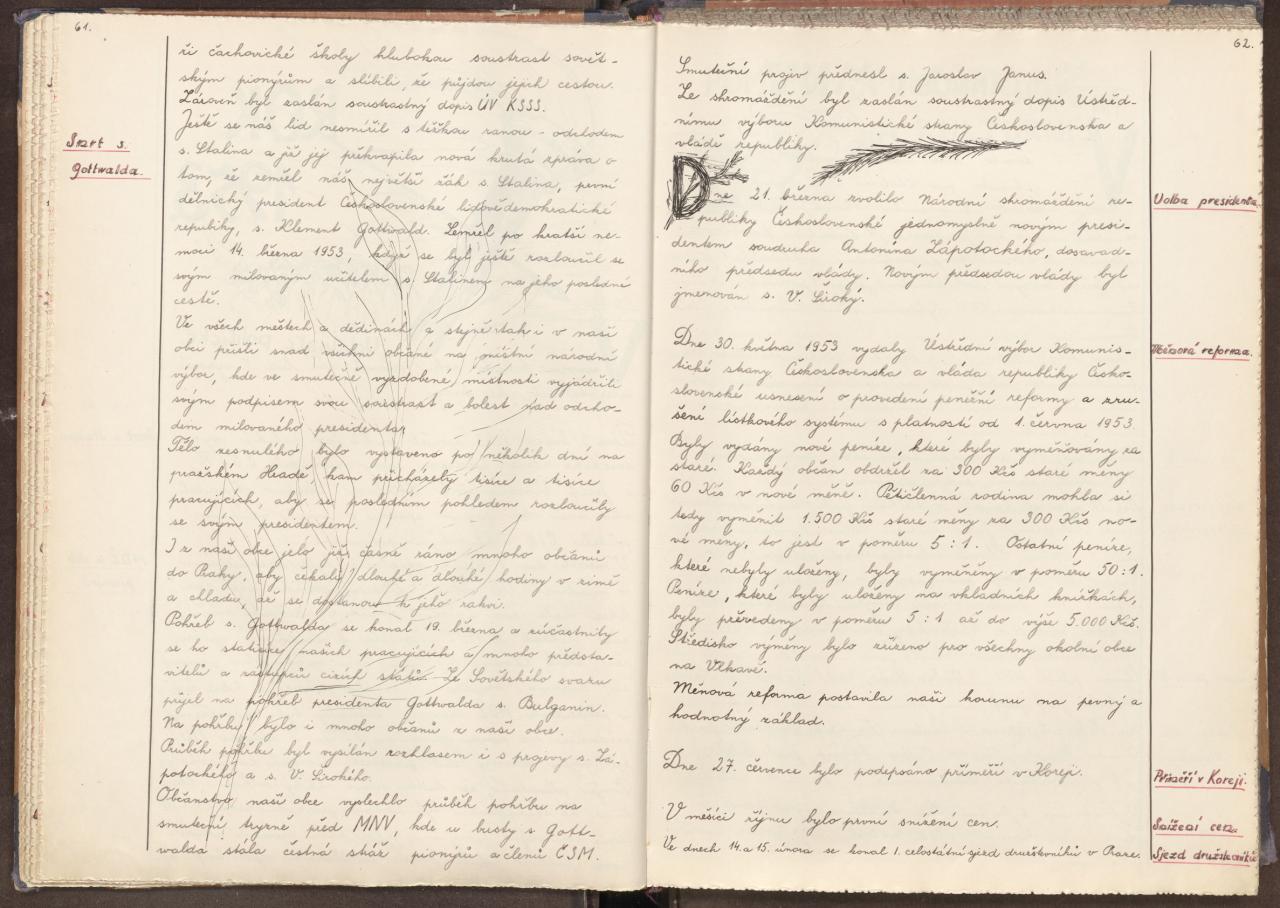 61.
ři čachovické školy hlubokou soustrast sovět-
ským pionýrům a slíbili, že půjdou jejich cestou.
Zároveň byl zaslán soustrastný dopis ÚV KSSS.
Smrt s.
Gottwalda.
Ještě se náš lid nesmířil s těžkou ranou - odchodem
s. Stalina a již jej překvapila nová krutá zpráva o
tom, že zemřel náš největší žák s. Stalina, první
dělnický president Československé lidovědemokratické
republiky, s. Klement Gottwald. Zemřel po kratší ne-
moci 14. března 1953, když se byl ještě rozloučil se
svým milovaným učitelem s. Stalinem na jeho poslední
cestě.
Ve všech městech a dědinách a stejně tak i v naší
obci přišli snad všichni občané na místní národní
výbor, kde ve smutečně vyzdobené místnosti vyjádřili
svým podpisem svou soustrast a bolest nad odcho-
dem milovaného presidenta.
Tělo zesnulého bylo vystaveno po několik dní na
pražském Hradě, kam přicházely tisíce a tisíce
pracujících, aby se posledním pohledem rozloučily
se svým presidentem.
I z naší obce jelo již časně ráno mnoho občanů
do Prahy, aby čekali dlouhé a dlouhé hodiny v zimě
a chladu, až se dostanou k jeho rakvi.
Pohřeb s. Gottwalda se konal 19. března a zúčastnily
se ho statisíce našich pracujících a mnoho předsta-
vitelů a zástupců cizích států. Ze Sovětského svazu
přijel na pohřeb presidenta Gottwalda s. Bulganin.
Na pohřbu bylo i mnoho občanů z naší obce.
Průběh pohřbu byl vysílán rozhlasem i s projevy s. Zá-
potockého a s. V. Širokého.
Občanstvo naší obce vyslechlo průběh pohřbu na
smuteční tryzně před MNV, kde u busty s. Gott-
walda stála čestná stráž pionýrů a členů ČSM.
62.
Smuteční projev přednesl s. Jaroslav Janus.
Ze shromáždění byl zaslán soustrastný dopis Ústřed-
nímu výboru Komunistické strany Československa a
vládě republiky.
Volba presidenta
Dne 21. března zvolilo Národní shromáždění re-
publiky Československé jednomyslně novým presi-
dentem soudruha Antonína Zápotockého, dosavad-
ního předsedu vlády. Novým předsedou vlády byl
jmenován s. V. Široký.
Měnová reforma.
Dne 30. května 1953 vydaly Ústřední výbor Komunis-
tické strany Československa a vláda republiky Česko-
slovenské usnesení o provedení peněžní reformy a zru-
šení lístkového systému s platností od 1. června 1953.
Byly vydány nové peníze, které byly vyměňovány za
staré. Každý občan obdržel za 300 Kčs staré měny
60 Kčs v nové měně. Pětičlenná rodina mohla si
tedy vyměnit 1.500 Kčs staré měny za 300 Kčs no-
vé měny, to jest v poměru 5:1. Ostatní peníze,
které nebyly uloženy, byly vyměněny v poměru 50:1.
Peníze, které byly uloženy na vkladních knížkách,
byly převedeny v poměru 5:1 až do výše 5.000 Kčs.
Středisko výměny bylo zřízeno pro všechny okolní obce
na Vlkavě.
Měnová reforma postavila naši korunu na pevný a
hodnotný základ.
Příměří v Koreji.
Dne 27. července bylo podepsáno příměří v Koreji.
Snížení cen.
V měsíci říjnu bylo první snížení cen.
Sjezd družstevníků
Ve dnech 14. a 15. února se konal I. celostátní sjezd družstevníků v Praze.